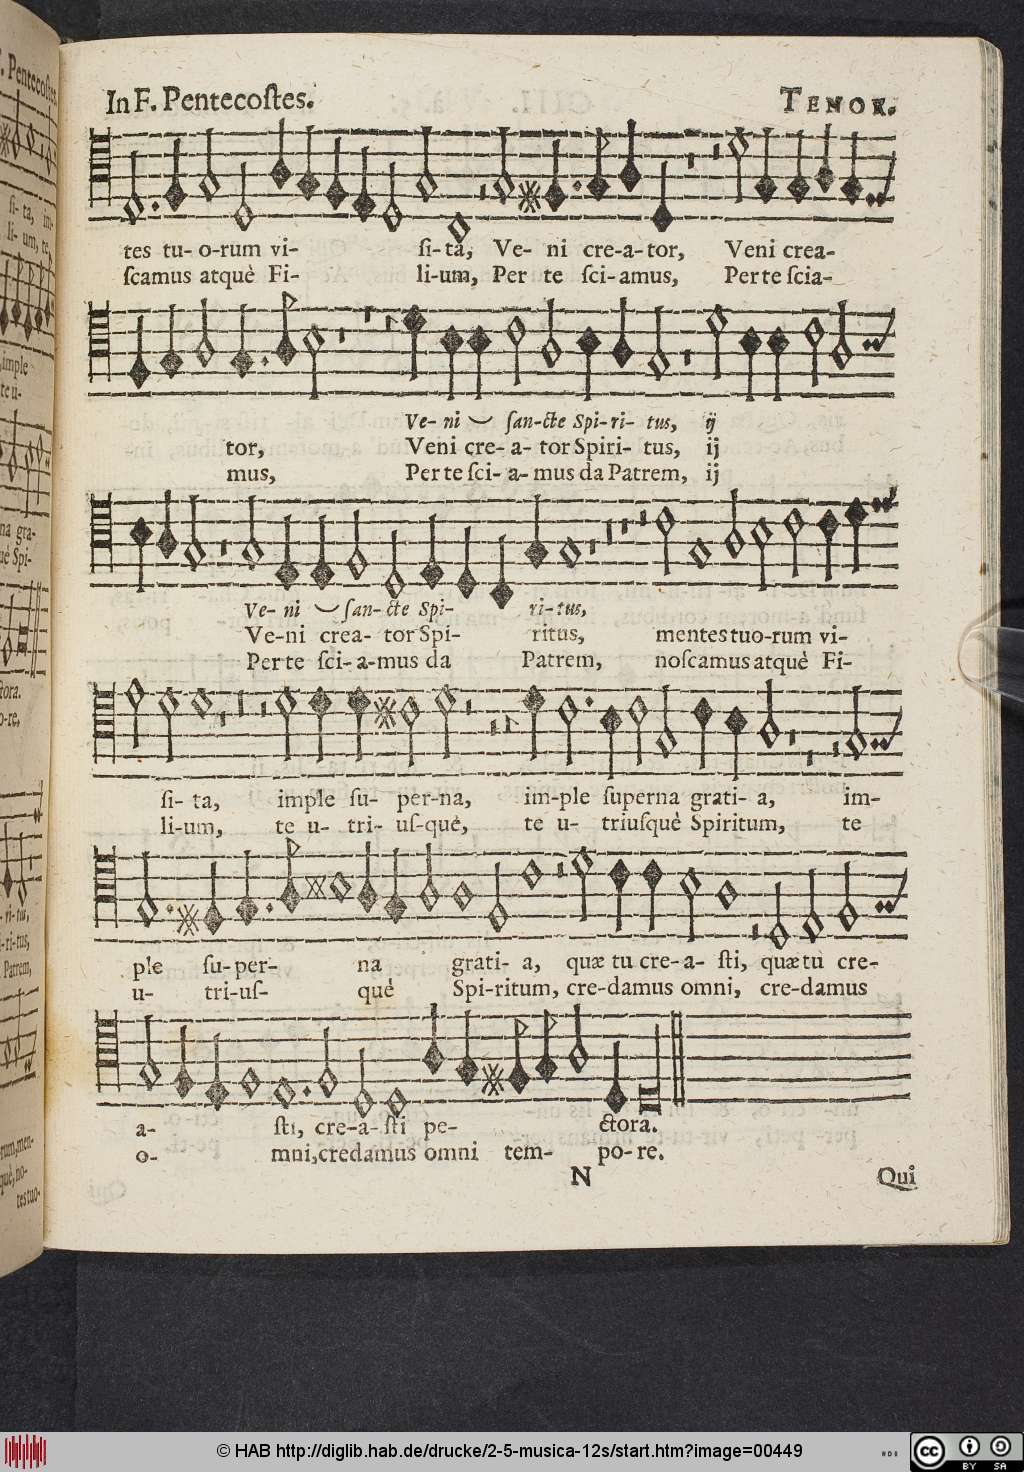 In F. Pentecoſtes.
TENOR.
tes tu- o-rum vi- ſi-ta, Ve- ni cre-a-tor, Veni crea-
ſcamus atquè Fi- li-um, Per te ſci-amus, Per te ſcia-
Ve- ni ſan-cte Spi-ri- tus, ij
tor, Veni cre- a- tor Spiri- tus, ij
mus, Per te ſci- a- mus da Patrem, ij
Ve- ni ſan-cte Spi- ri-tus,
Ve-ni crea- tor Spi- ritus, mentes tuo-rum vi-
Per te ſci-a-mus da Patrem, noſcamus atquè Fi-
ſi- ta, imple ſu- per-na, im-ple ſuperna grati- a, im-
li-um, te u- tri- uſ-què, te u- triuſquè Spiritum, te
ple ſu-per- na grati- a, quæ tu cre-a- ſti, quæ tu cre-
u- tri-uſ- què Spi-ritum, cre-damus omni, cre-damus
a- ſti, cre-a-ſti pe- ctora.
o- mni, credamus omni tem- po-re.
N
Qui
© HAB http://diglib.hab.de/drucke/2-5-musica-12s/start.htm?image=00449
cc BY SA